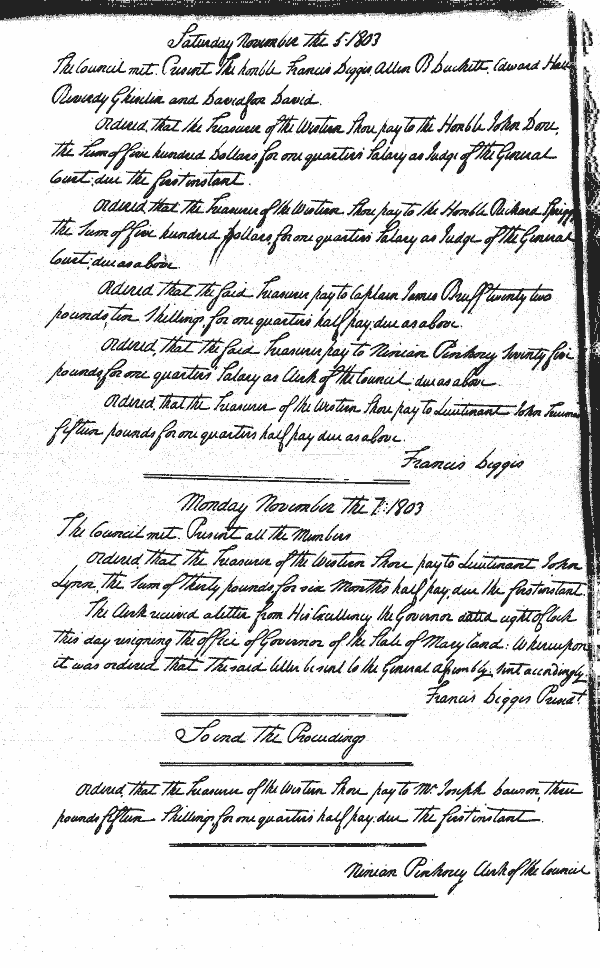 Saturday November the 5. 1803
The Council met. Present The honble Francis Digges Allen B Duckett. Edward Hall
Reverdy Ghiselin and Davidson David.
Ordered, that the Treasurer of the Western Shore pay to the Honble John Done,
the Sum of five hundred Dollars, for one quarters Salary as Judge of the General
Court, due the first instant.
Ordered, that the Treasurer of the Western Shore pay to the Honble Richard Sprigg
the Sum of five hundred Dollars, for one quarters Salary as Judge of the General
Court, due as above
Ordered that the said Treasurer pay to Captain James Bruff twenty two
pounds, ten Shillings, for one quarters half pay, due as above.
Ordered, that the said Treasurer pay to Ninian Pinkney Seventy five
pounds for one quarters Salary as Clerk of the Council, due as above
Ordered, that the Treasurer of the Western Shore pay to Lieutenant John
fifteen pounds for one quarters half pay due as above.
Francis Digges
Monday November the 7. 1803
The Council met. Present all the Members
Ordered, that the Treasurer of the Western Shore pay to Lieutenant John
Lynn, the Sum of thirty pounds, for six Months half pay, due the first instant.
The Clerk received a letter from His Excellency the Governor dated eight oClock
this day resigning the office of Governor of the State of Maryland: whereupon
it was ordered that The said letter be sent to the General Assembly, sent accordingly.
Francis Digges Presdt.
So end The Proceedings
Ordered, that the Treasurer of the Western Shore pay to Mr. Joseph Lawson, three
pounds fifteen Shillings, for one quarters half pay, due The first instant.
Ninian Pinkney Clerk of the Council